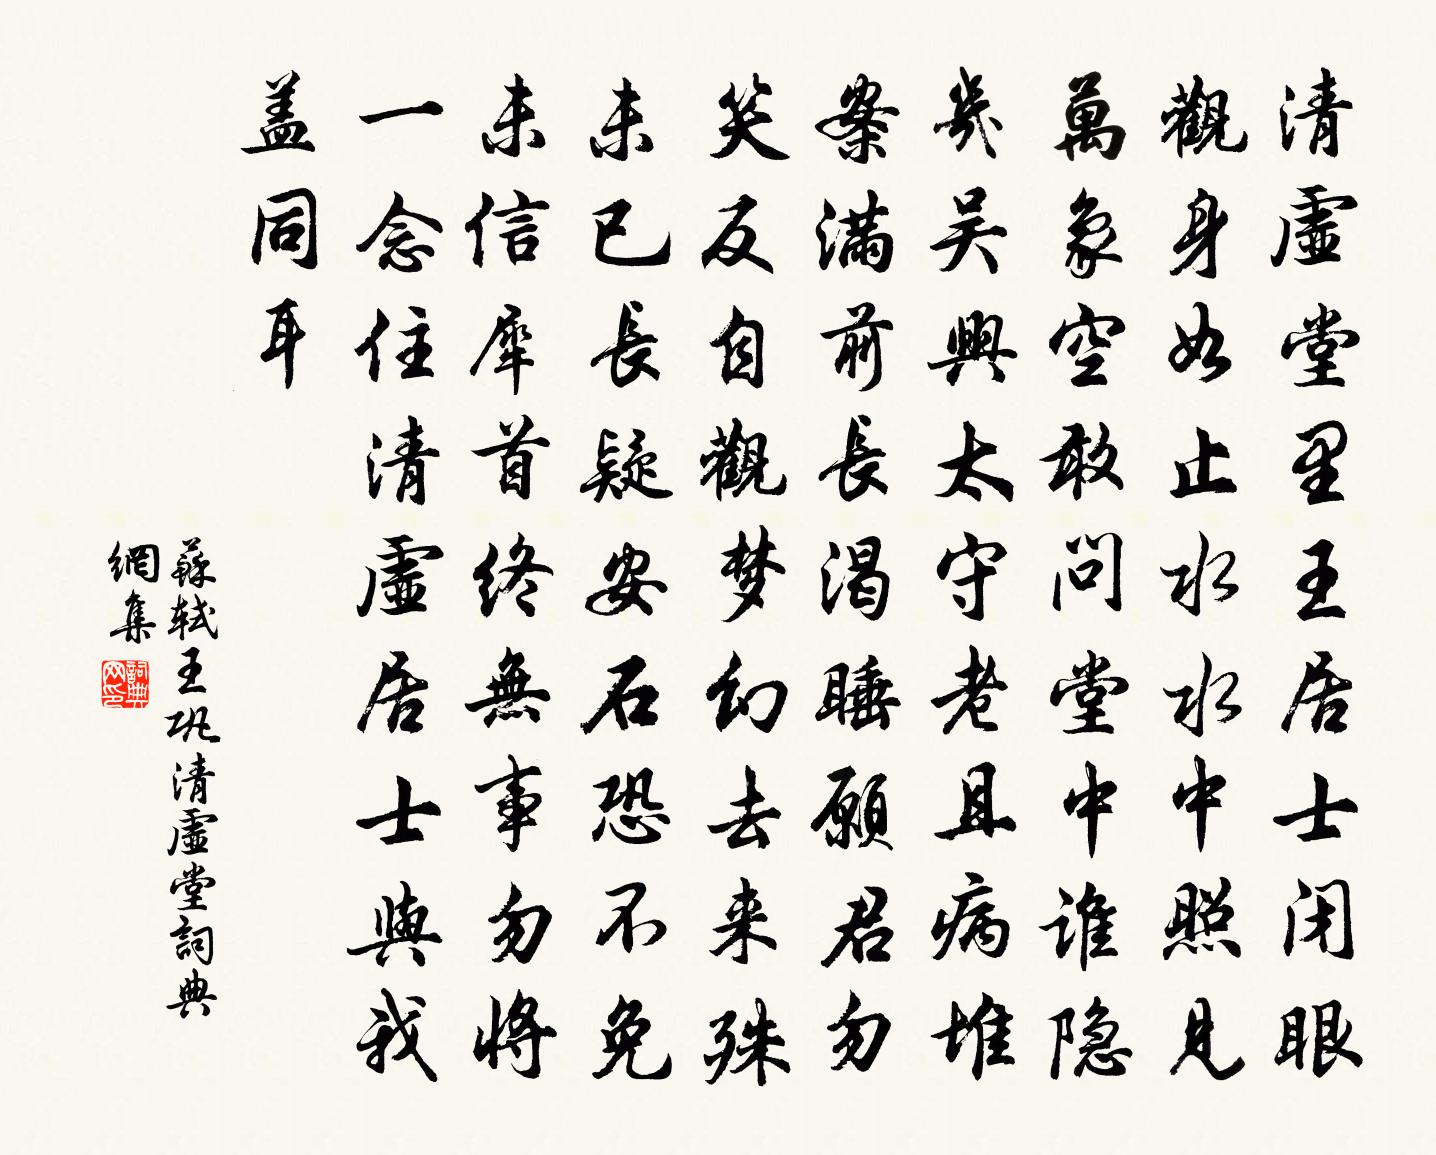 清虛堂里王居士闭眼
觀身如止水水中照見
萬象空敢問堂中谁隐
几吴興太守老且病堆
案满前長渴睡願君勿
笑反自觀梦幻去来殊
未已長疑安石恐不免
未信犀首终無事勿将
一念住清虛居士與我
盖同耳
蘇轼王巩清虛堂詞典
網集
詞典
网印